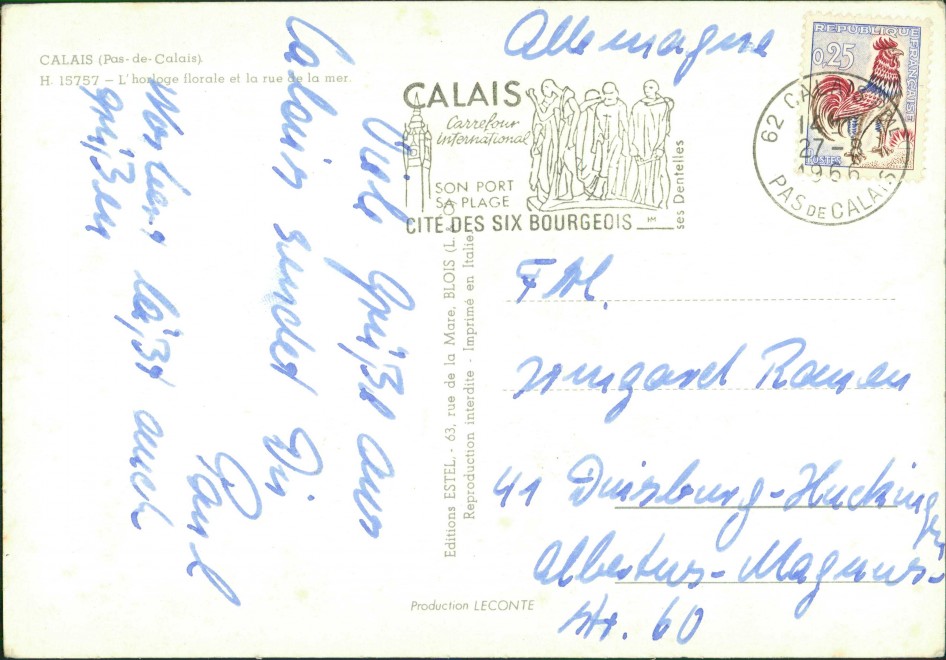 CALAIS (Pas-de-Calais)
H. 15757 – L'horloge florale et la rue de la mer.
Allemagne
REPUBLIQUE FRANÇAISE
0,25
POSTES
62 CALAIS
27-
1966
PAS DE CALAIS
CALAIS
Carrefour
international
SON PORT
SA PLAGE
CITÉ DES SIX BOURGEOIS
ses Dentelles
Viele Grüße aus
Calais sendet Dir
Paul
läßt auch
grüßen
Editions ESTEL - 63, rue de la Mare, BLOIS
Reproduction interdite - Imprimé en Italie
Production LECONTE
Frl.
Irmgard
41 Duisburg-Huckingen
Albertus-Magnus-
Str. 60